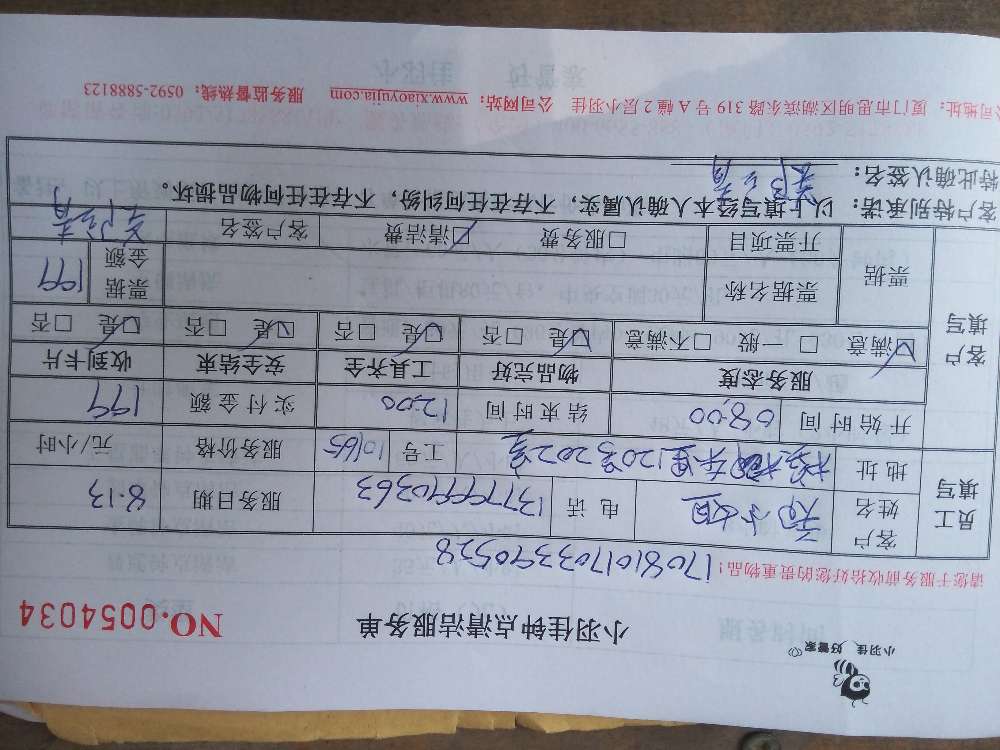 小羽佳 好管家
小羽佳钟点清洁服务单
NO.0054034
请您于服务前收拾好您的贵重物品!
1708101703390528
员工填写
客户姓名
电话 13779990363
服务日期 8.13
地址 120号202室
工号 10165
服务价格 元/小时
开始时间 08:00
结束时间 12:00
实付金额 199
客户填写
服务态度 物品完好 工具齐全 安全结束 收到卡片
☑满意 □一般 □不满意 ☑是 □否 ☑是 □否 ☑是 □否 ☑是 □否
票据
票据名称
票据金额 199
开票项目 □服务费 ☑清洁费
客户签名
客户特别承诺:以上填写经本人确认属实;不存在任何纠纷,不存在任何物品损坏。
特此确认签名:
公司地址:厦门市思明区湖滨东路319号A幢2层小羽佳 公司网站:www.xiaoyujia.com 服务监督热线:0592-5888123